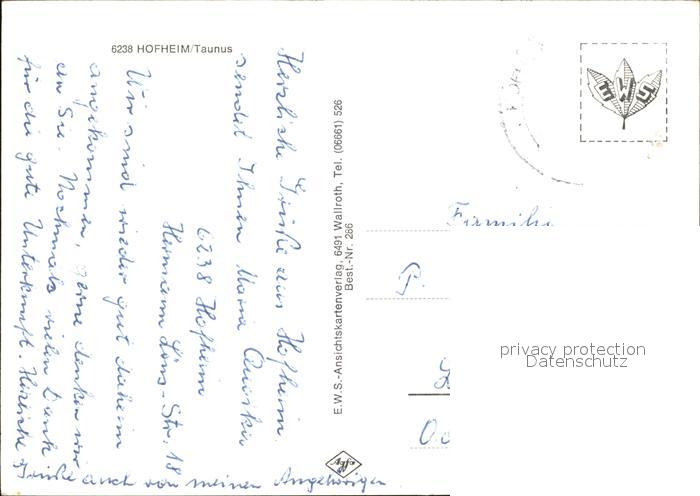 6238 HOFHEIM/Taunus
Herzliche Grüße aus Hofheim
sendet Ihnen Maria
6238 Hofheim
Hermann Löns-Str. 18
Wir sind wieder gut daheim
angekommen, gerne denken wir
an Sie. Nochmals vielen Dank
für die gute Unterkunft. Herzliche
Grüße auch von meinen Angehörigen
E.W.S.-Ansichtskartenverlag, 6491 Wallroth, Tel. (06661) 526
Best.-Nr. 286
Agfa
EWS
Familie
P.
privacy protection
Datenschutz